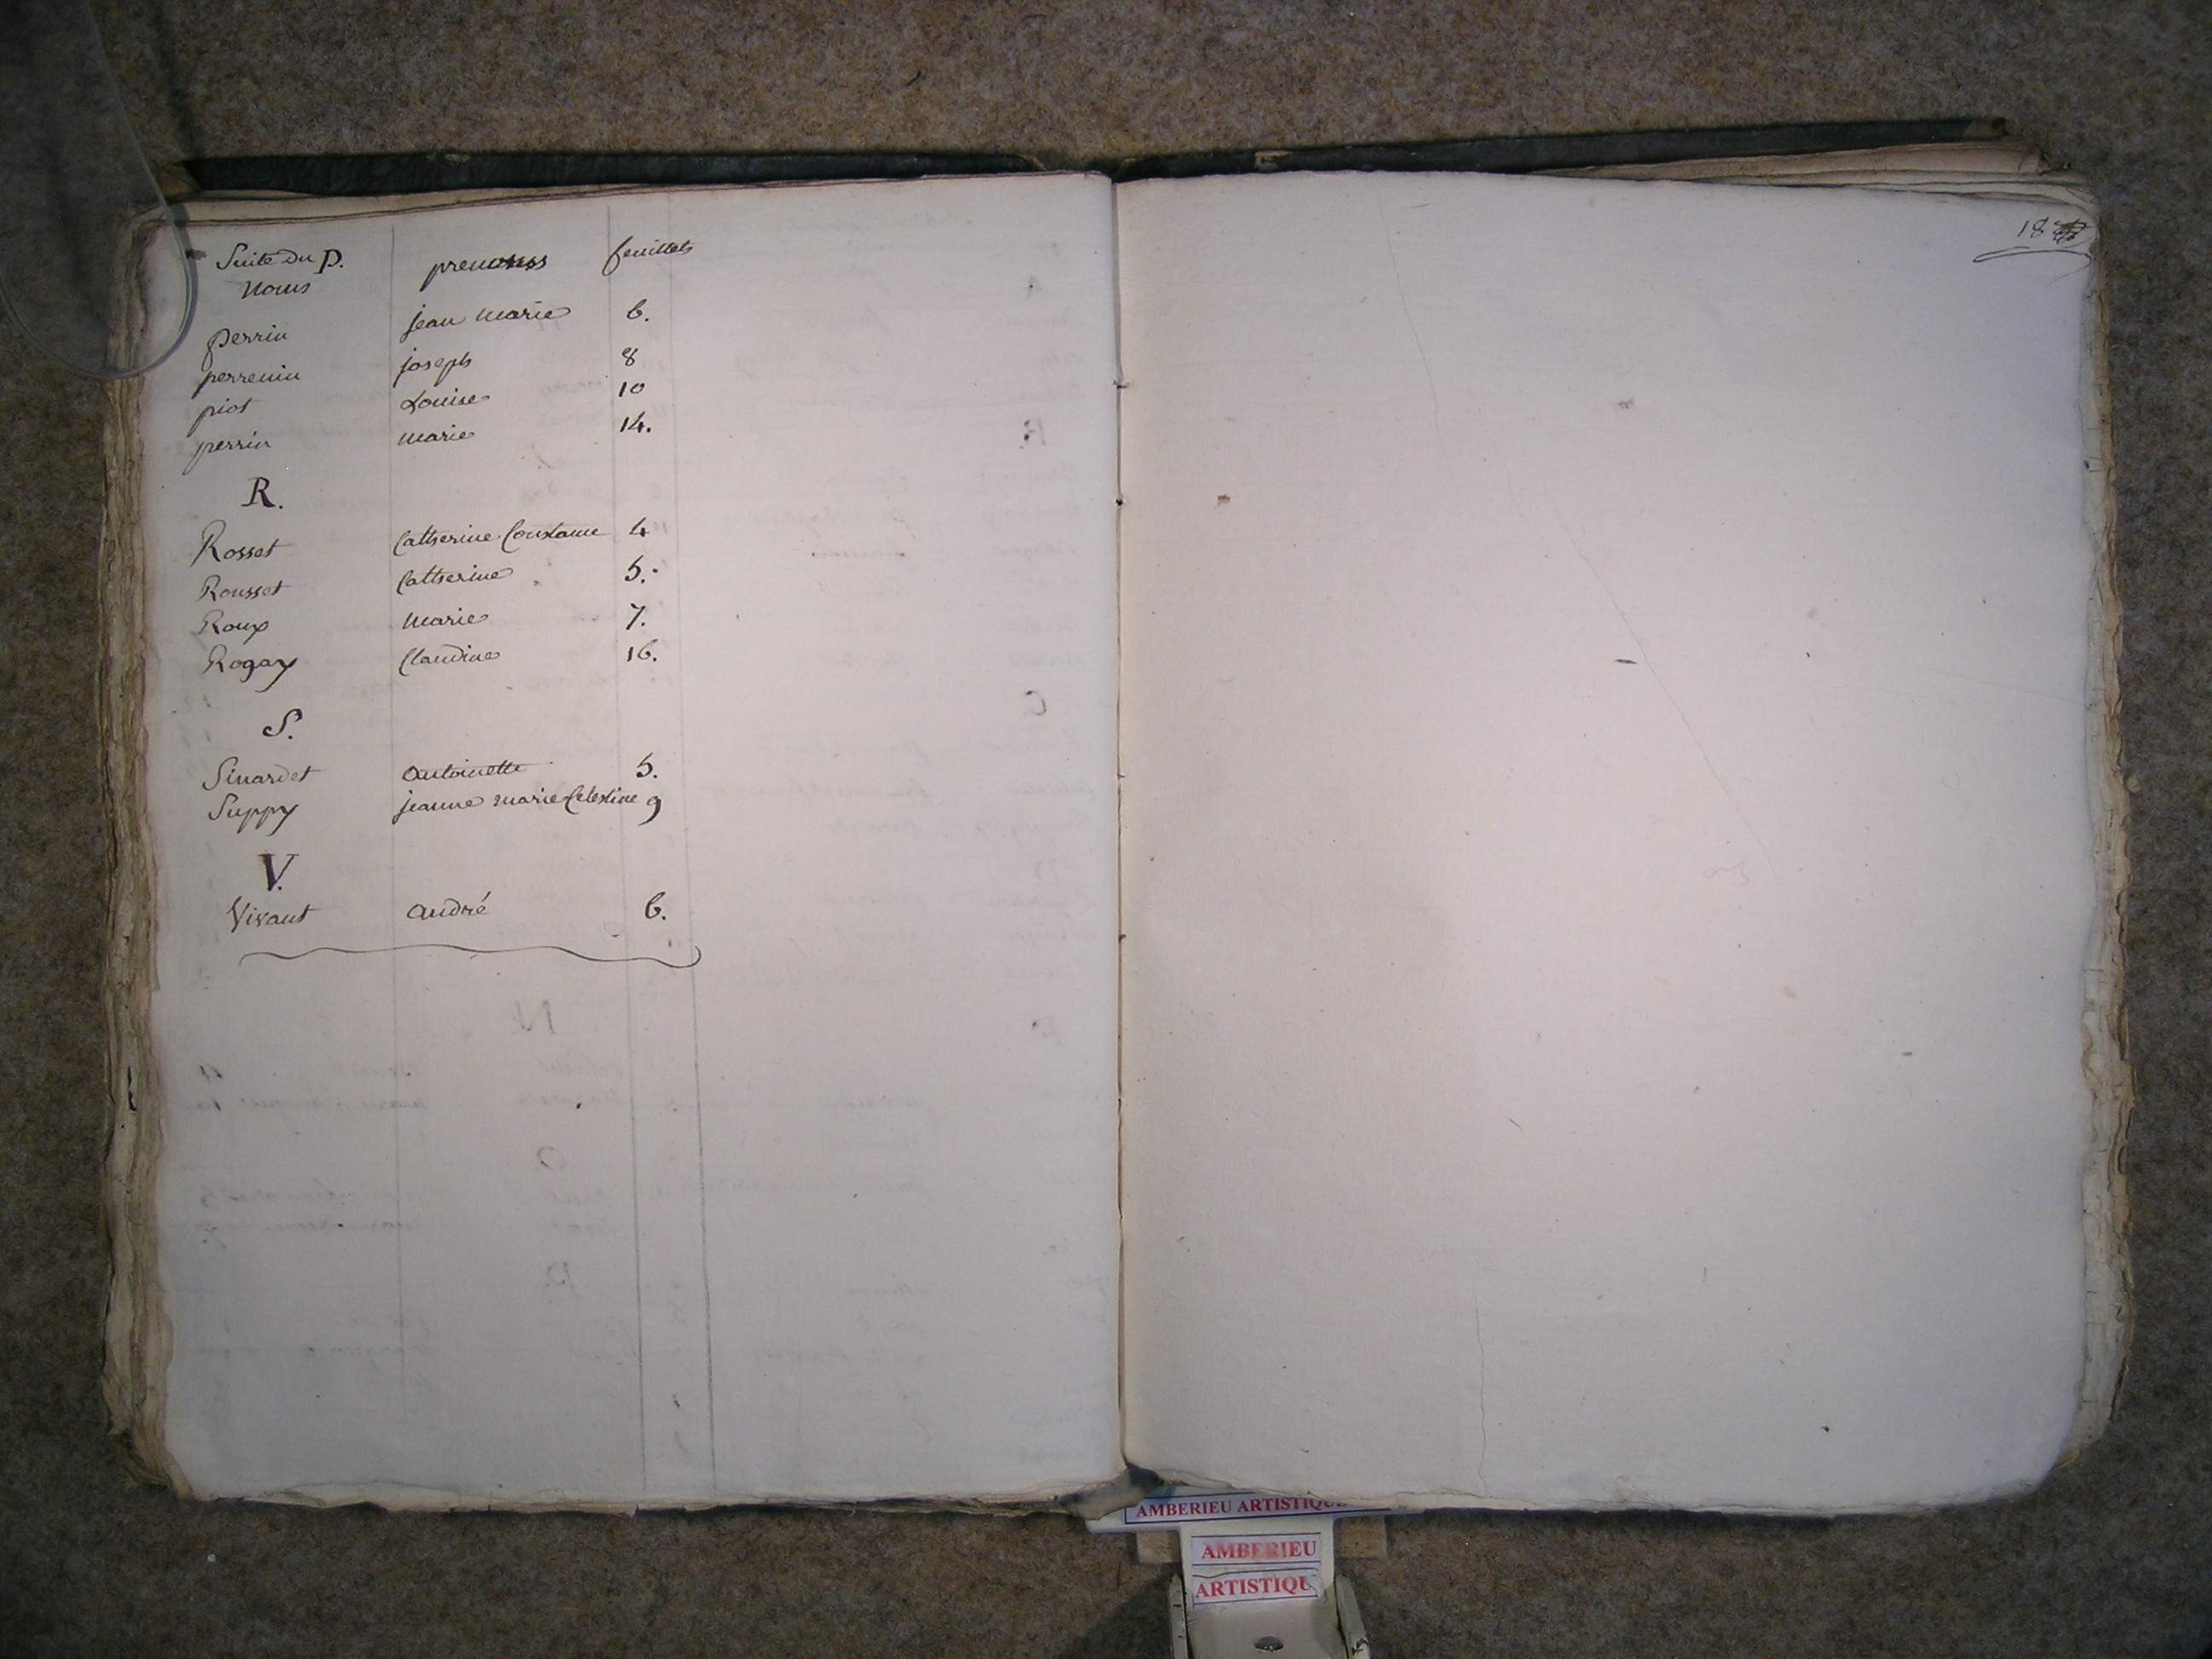 Suite du P.
Noms prenoms feuillets
perrin jean marie 6.
perrenin joseph 8
piot Louise 10
perrin marie 14.
R.
Rosset Catherine Constance 4
Rousset Catherine 5.
Roux marie 7.
Rogay Claudine 16.
S.
Sinardet antoinette 5.
Suppy jeanne marie Celestine 9
V.
Vivant andré 6.
18
AMBERIEU ARTISTIQUE
AMBERIEU
ARTISTIQU